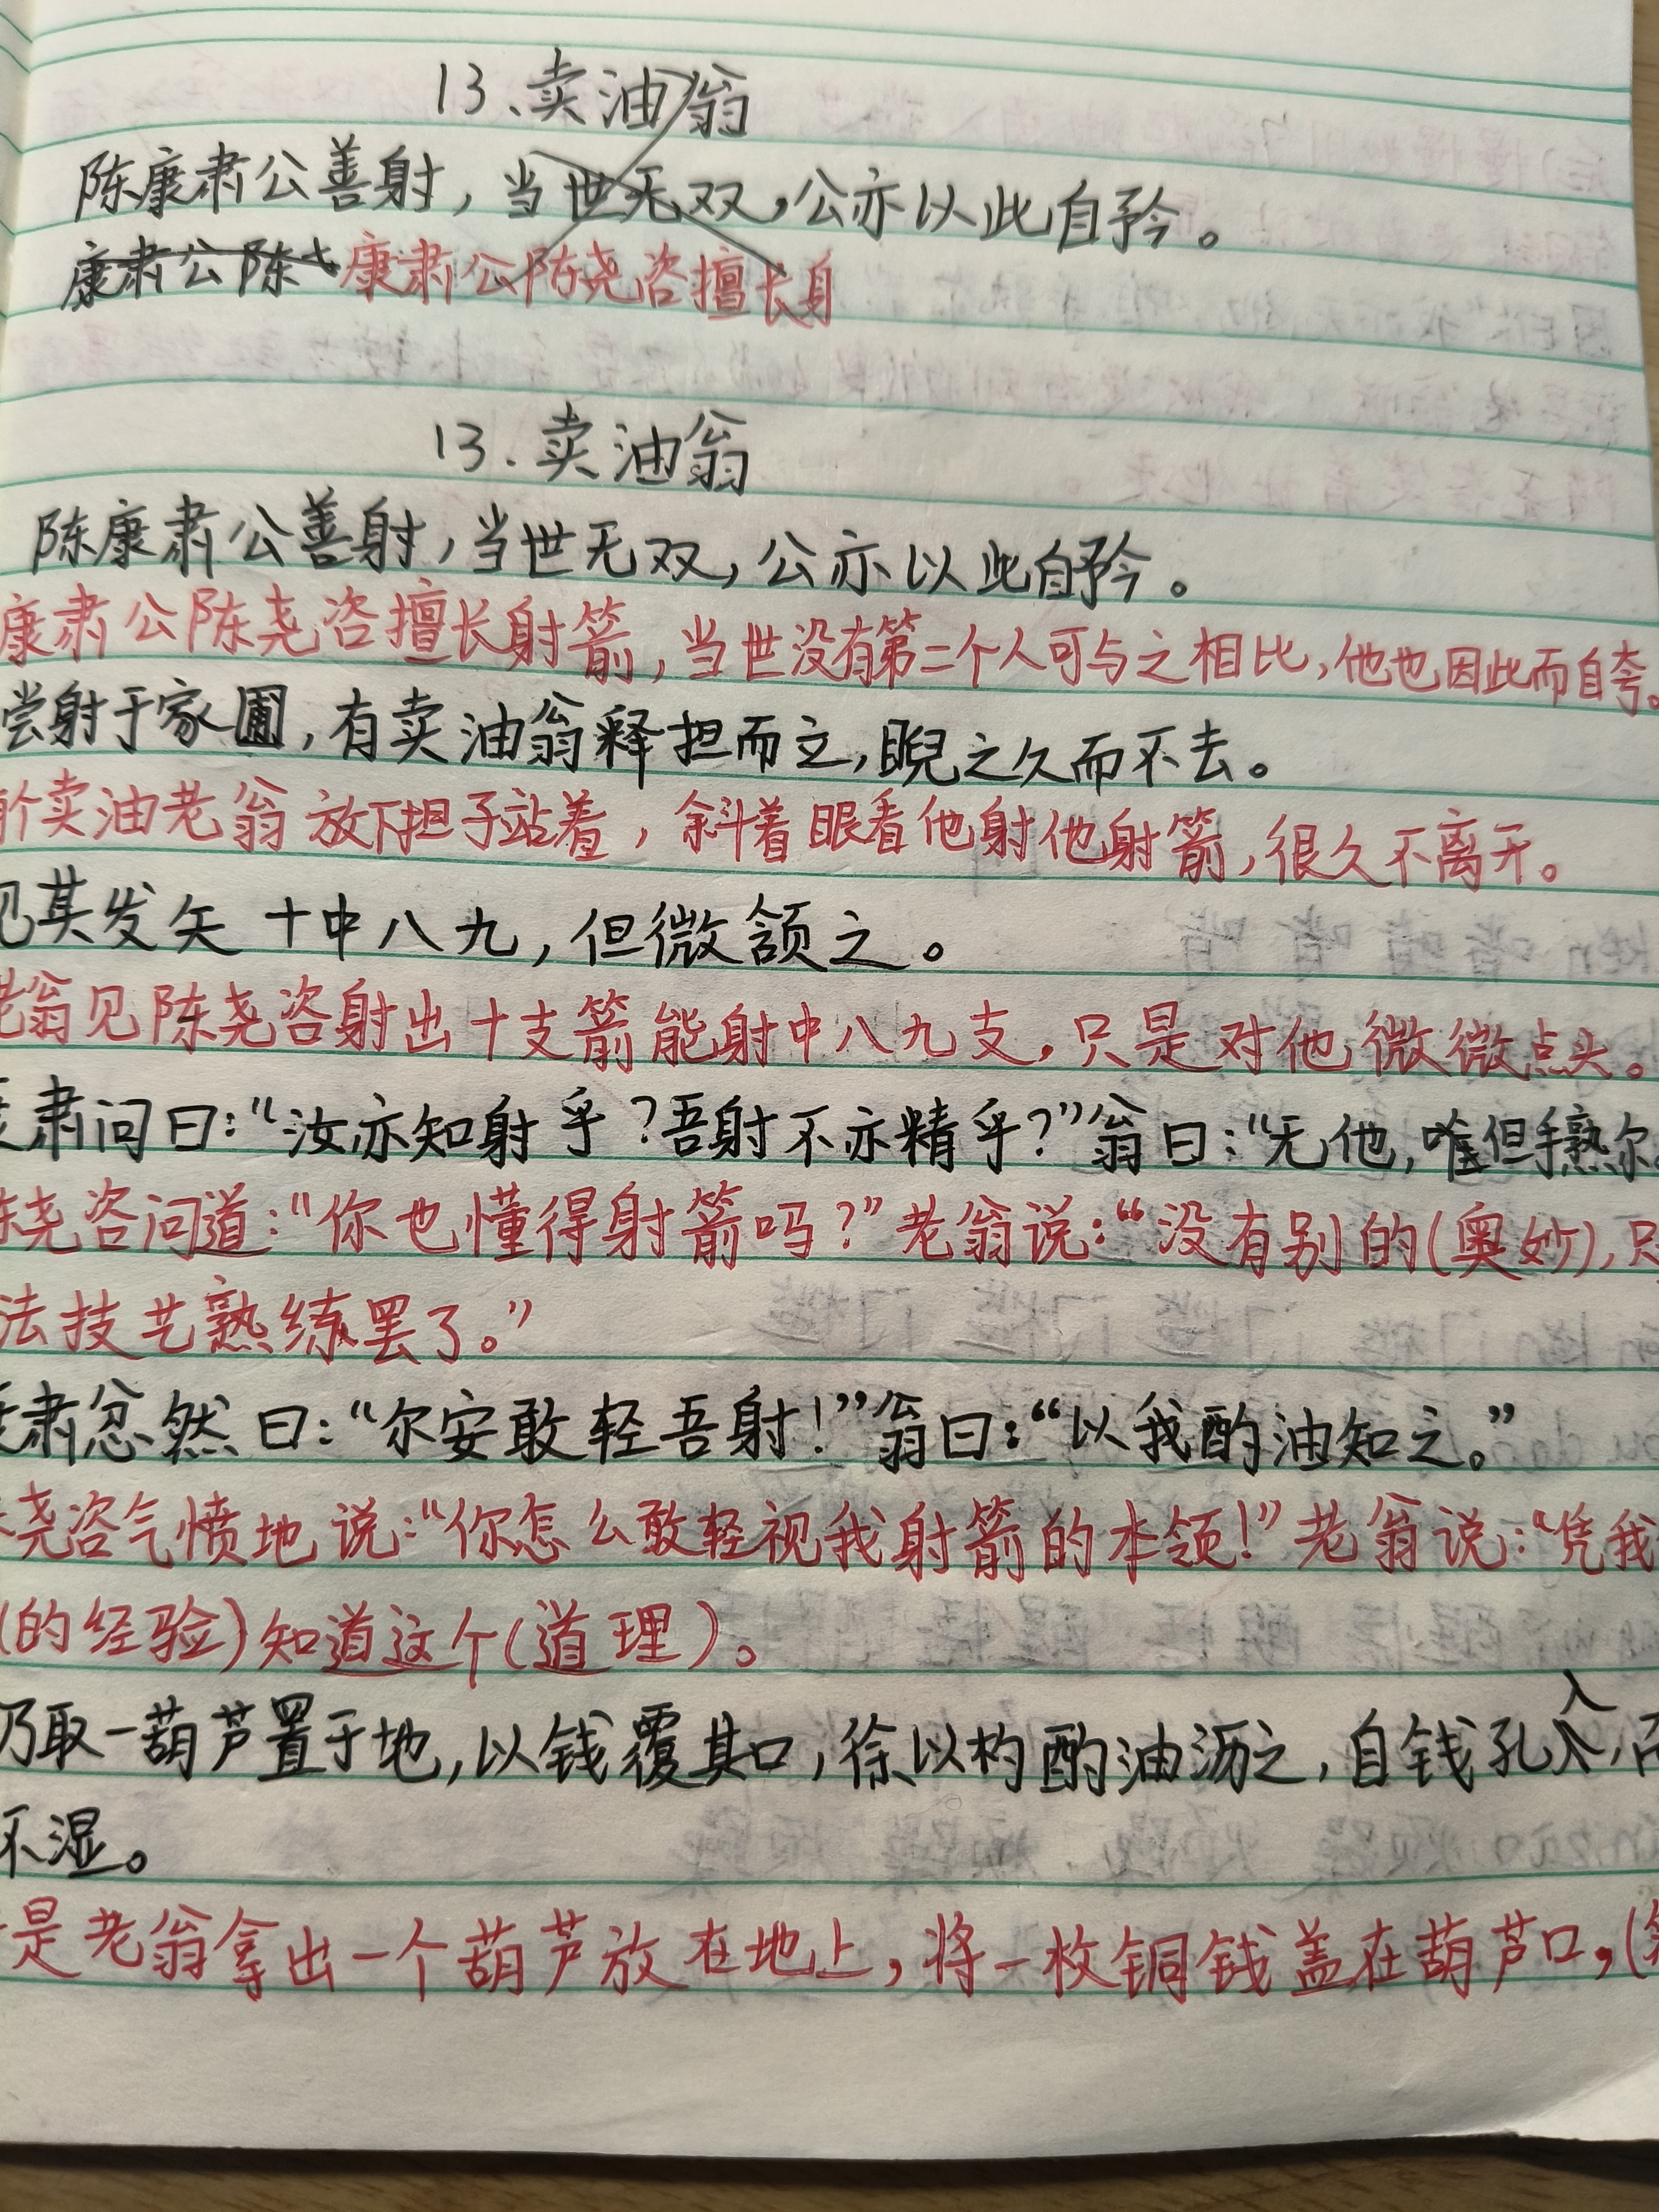 13、卖油翁
陈康肃公善射，当世无双，公亦以此自矜。
康肃公陈 康肃公陈尧咨擅长身
13. 卖油翁
陈康肃公善射，当世无双，公亦以此自矜。
康肃公陈尧咨擅长射箭，当世没有第二个人可与之相比，他也因此而自夸。
尝射于家圃，有卖油翁释担而立，睨之久而不去。
个卖油老翁放下担子站着，斜着眼看他射他射箭，很久不离开。
见其发矢十中八九，但微颔之。
老翁见陈尧咨射出十支箭能射中八九支，只是对他微微点头。
肃问曰：“汝亦知射乎？吾射不亦精乎？”翁曰：“无他，唯但手熟尔。
尧咨问道：“你也懂得射箭吗？”老翁说：“没有别的(奥妙)，只
法技艺熟练罢了。”
肃忿然曰：“尔安敢轻吾射！”翁曰：“以我酌油知之。”
尧咨气愤地说：“你怎么敢轻视我射箭的本领！”老翁说：“凭我
(的经验)知道这个(道理)。
乃取一葫芦置于地，以钱覆其口，徐以杓酌油沥之，自钱孔入，而
不湿。
是老翁拿出一个葫芦放在地上，将一枚铜钱盖在葫芦口，(